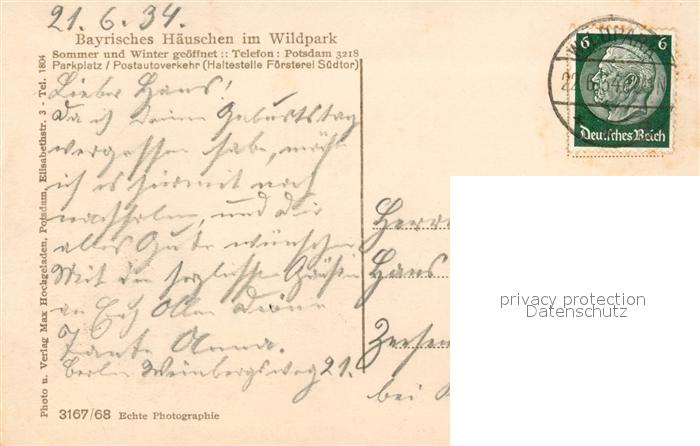 21. 6. 34.
Bayrisches Häuschen im Wildpark
Sommer und Winter geöffnet :: Telefon : Potsdam 3218
Parkplatz / Postautoverkehr (Haltestelle Försterei Südtor)
Lieber Hans!
Da ich Deinen Geburtstag
vergessen habe, möcht
ich es hiermit noch
nachholen, und Dir
alles Gute wünschen
Mit den herzlichsten Grüßen
an Euch Allen Deine
Tante Anna.
Berlin Weinbergsweg 21.
Photo u. Verlag Max Hockgeladen, Potsdam, Elisabethstr. 3 - Tel. 1804
3167/68 Echte Photographie
6 6
Deutsches Reich
Herrn
Hans
bei
privacy protection
Datenschutz